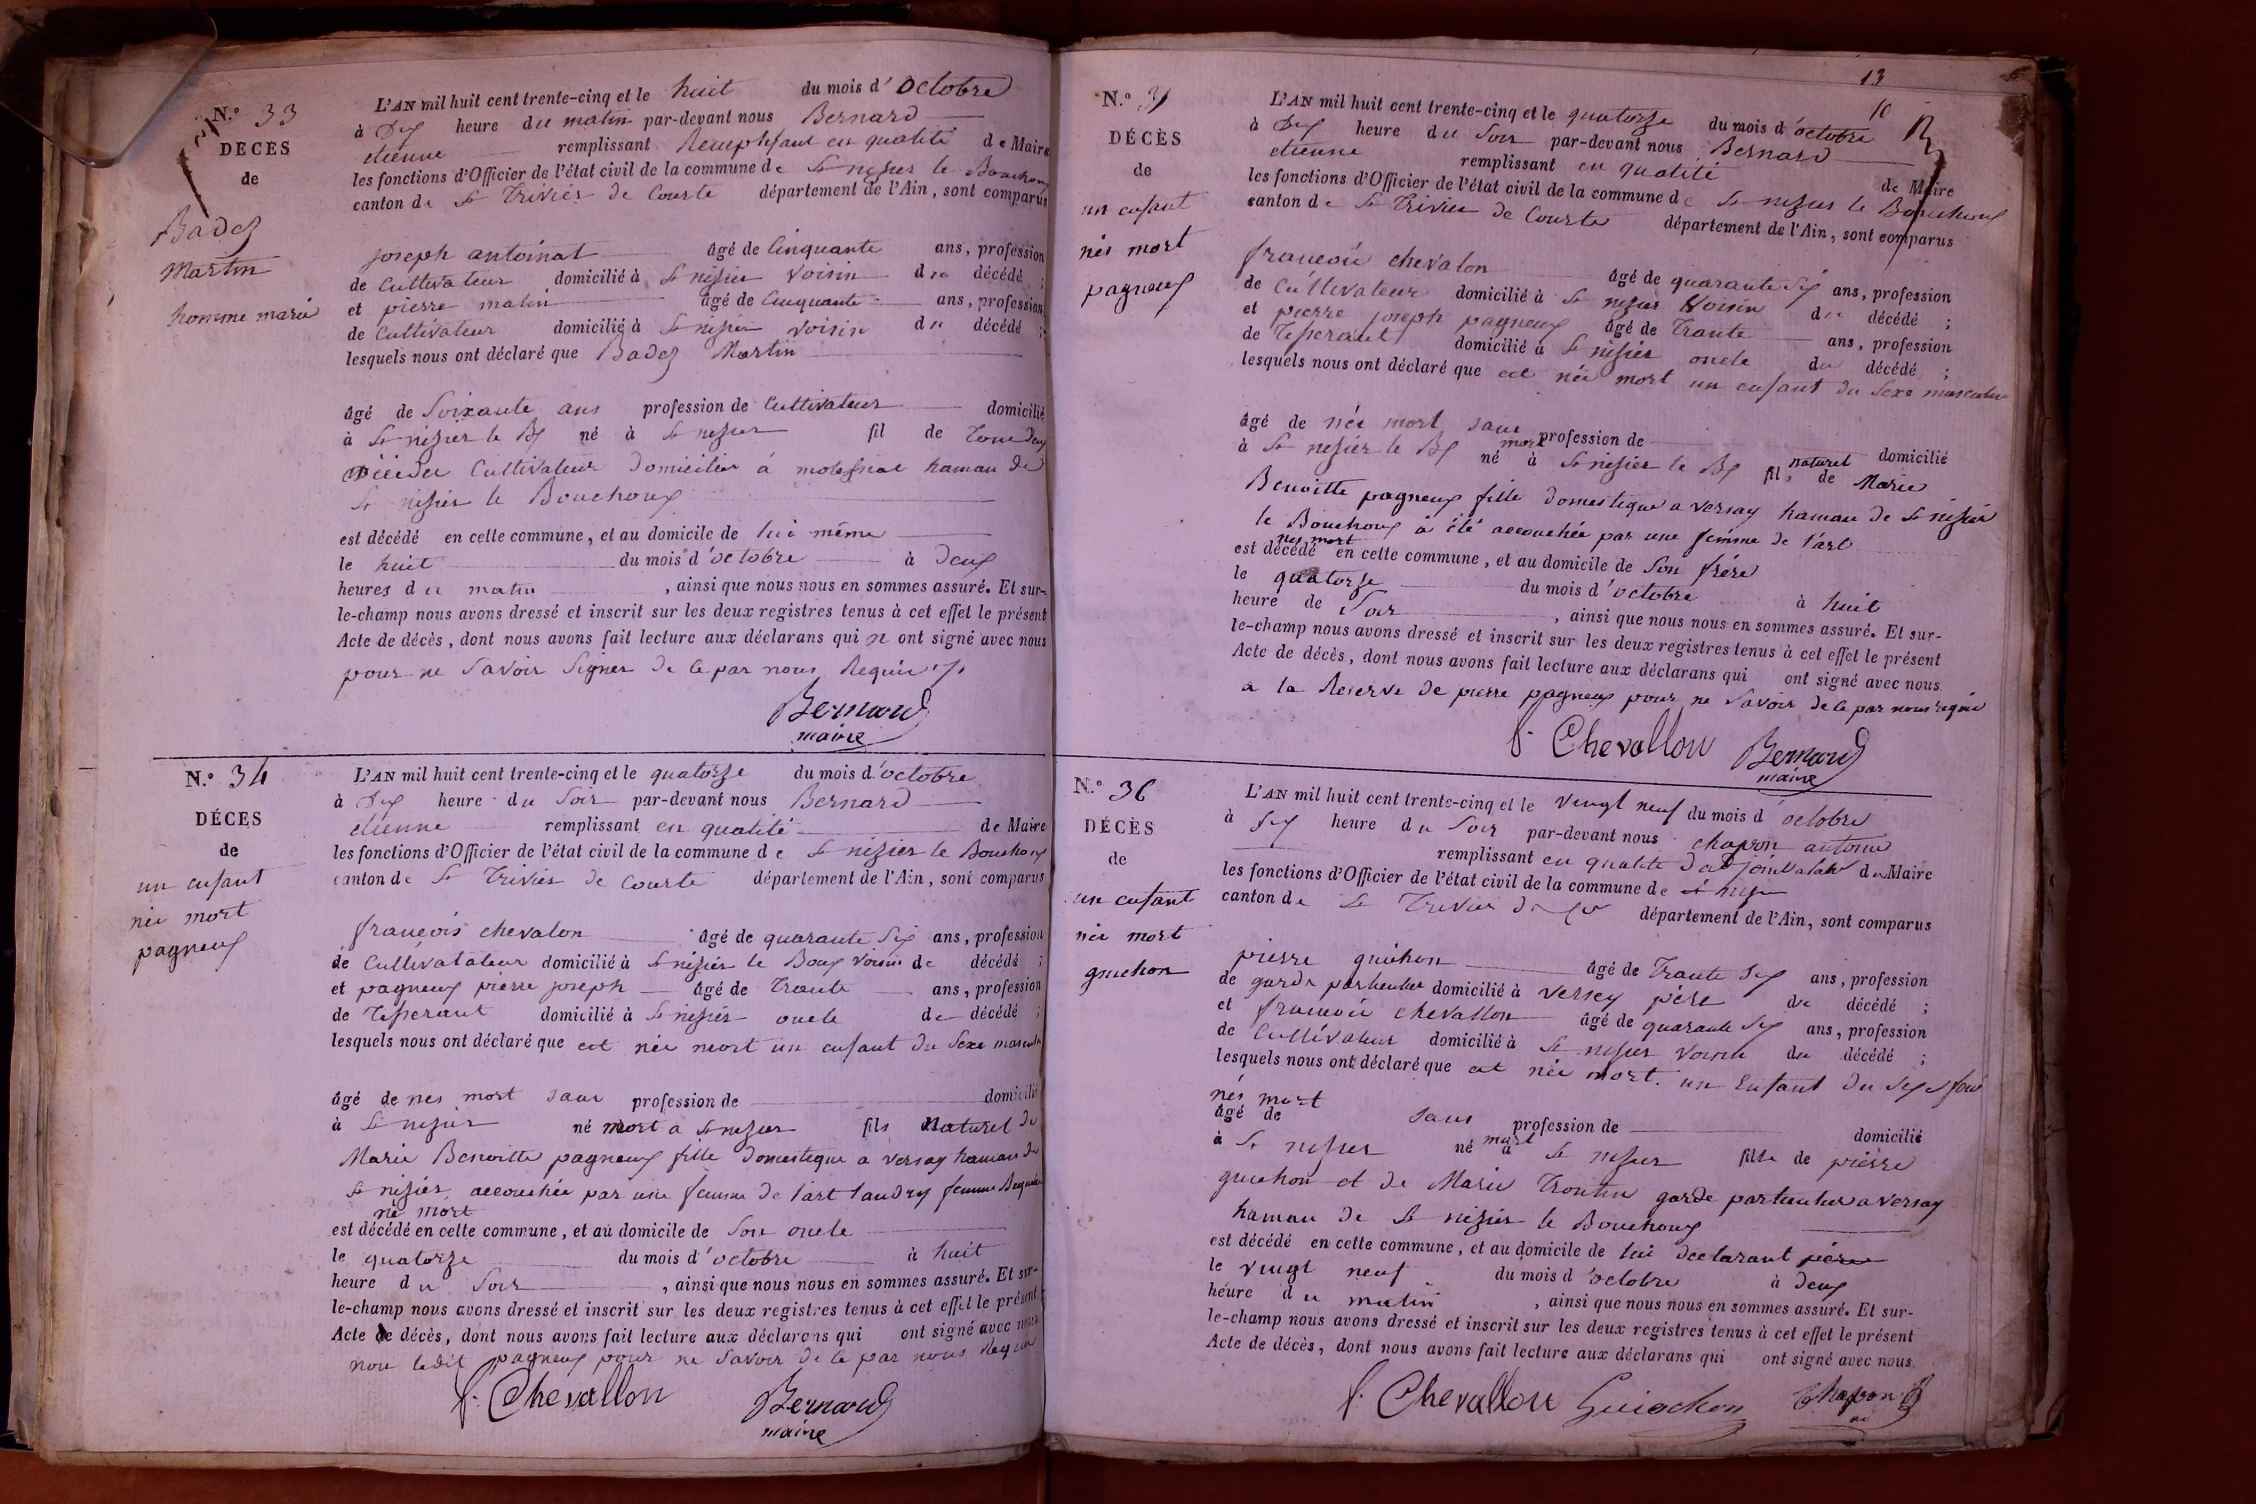 N.o 33
DÉCÈS
de
Badez
Martin
homme marié
L'AN mil huit cent trente-cinq et le huit du mois d'octobre
à Dix heure du matin par-devant nous Bernard
etienne remplissant en qualité de Maire
les fonctions d'Officier de l'état civil de la commune de St nizier le Bouchoux
canton de St Trivier de Courte département de l'Ain, sont comparus
joseph antoinat âgé de Cinquante ans, profession
de Cultivateur domicilié à St nizier voisin du décédé ;
et pierre matin âgé de Cinquante ans, profession
de Cultivateur domicilié à St nizier voisin du décédé ;
lesquels nous ont déclaré que Badez Martin
âgé de Soixante ans profession de Cultivateur domicilié
à St nizier le Bx né à St nizier fil de
Cultivateur Domicilier á hamau de
St nizier le Bouchoux
est décédé en cette commune, et au domicile de lui même
le huit du mois d'octobre à deux
heures du matin, ainsi que nous nous en sommes assuré. Et sur-
le-champ nous avons dressé et inscrit sur les deux registres tenus à cet effet le présent
Acte de décès, dont nous avons fait lecture aux déclarans qui n ont signé avec nous
pour ne Savoir Signer de ce par nous Requis
Bernard
maire
N.o 34
DÉCÈS
de
un enfant
née mort
pagneux
L'AN mil huit cent trente-cinq et le quatorze du mois d'octobre
à Dix heure du Soir par-devant nous Bernard
etienne remplissant en qualité de Maire
les fonctions d'Officier de l'état civil de la commune de St nizier le Bouchoux
canton de St Trivier de Courte département de l'Ain, sont comparus
françois chevalon âgé de quarante Six ans, profession
de Cultivatateur domicilié à St nizier le Boux voisin de décédé ;
et pagneux pierre joseph âgé de Trante ans, profession
de Tisserant domicilié à St nizier oncle de décédé ;
lesquels nous ont déclaré que est née mort un enfant du Sexe masculin
âgé de nes mort sans profession de domicilié
à St nizier né mort a St nizier fils naturel de
Marie Benoitte pagneux fille domestique a versay hamau de
St nizier accouchée par une femme de l'art landry femme
né mort
est décédé en cette commune, et au domicile de Son oncle
le quatorze du mois d'octobre à huit
heure du Soir, ainsi que nous nous en sommes assuré. Et sur-
le-champ nous avons dressé et inscrit sur les deux registres tenus à cet effet le présent
Acte de décès, dont nous avons fait lecture aux déclarans qui ont signé avec nous
non ledit pagneux pour ne Savoir de ce par nous Requis
f. Chevallon Bernard
maire
13
10
N.o
DÉCÈS
de
un enfant
nés mort
pagneux
L'AN mil huit cent trente-cinq et le quatorze du mois d'octobre
à Dix heure du Soir par-devant nous Bernard
etienne remplissant en qualité de Maire
les fonctions d'Officier de l'état civil de la commune de St nizier le Bouchoux
canton de St Trivier de Courte département de l'Ain, sont comparus
françois chevalon âgé de quarante Six ans, profession
de Cultivateur domicilié à St nizier Voisin du décédé ;
et pierre joseph pagneux âgé de Trante ans, profession
de Tisserant domicilié à St nizier oncle du décédé ;
lesquels nous ont déclaré que est née mort un enfant du Sexe masculin
âgé de née mort sans profession de domicilié
à St nizier le Bx né mort à St nizier le Bx fils naturel de Marie
Benoitte pagneux fille domestique a versay hamau de St nizier
le Bouchoux à été accouchée par une femme de l'art
nés mort
est décédé en cette commune, et au domicile de Son frére
le quatorze du mois d'octobre à huit
heure de Soir, ainsi que nous nous en sommes assuré. Et sur-
le-champ nous avons dressé et inscrit sur les deux registres tenus à cet effet le présent
Acte de décès, dont nous avons fait lecture aux déclarans qui ont signé avec nous
a la Reserve de pierre pagneux pour ne Savoir de ce par nous requis
f. Chevallon Bernard
maire
N.o 36
DÉCÈS
de
un enfant
née mort
guichon
L'AN mil huit cent trente-cinq et le vingt neuf du mois d'octobre
à Six heure du Soir par-devant nous chapron antoine
remplissant en qualité du Maire
les fonctions d'Officier de l'état civil de la commune de
canton de St Trivier département de l'Ain, sont comparus
pierre guichon âgé de Trante Six ans, profession
de garde particulier domicilié à Versey père du décédé ;
et françois chevallon âgé de quarante Six ans, profession
de Cultivateur domicilié à St nizier Voisin du décédé ;
lesquels nous ont déclaré que est née mort. un Enfant du
nés mort
âgé de sans profession de domicilié
à St nizier né mort à St nizier fille de pièrre
guichon et de Marie garde particulier a versay
hamau de St nizier le Bouchoux
est décédé en cette commune, et au domicile de lui declarant père
le vingt neuf du mois d'octobre à deux
heure du matin, ainsi que nous nous en sommes assuré. Et sur-
le-champ nous avons dressé et inscrit sur les deux registres tenus à cet effet le présent
Acte de décès, dont nous avons fait lecture aux déclarans qui ont signé avec nous
f. Chevallon Guichon Chapron